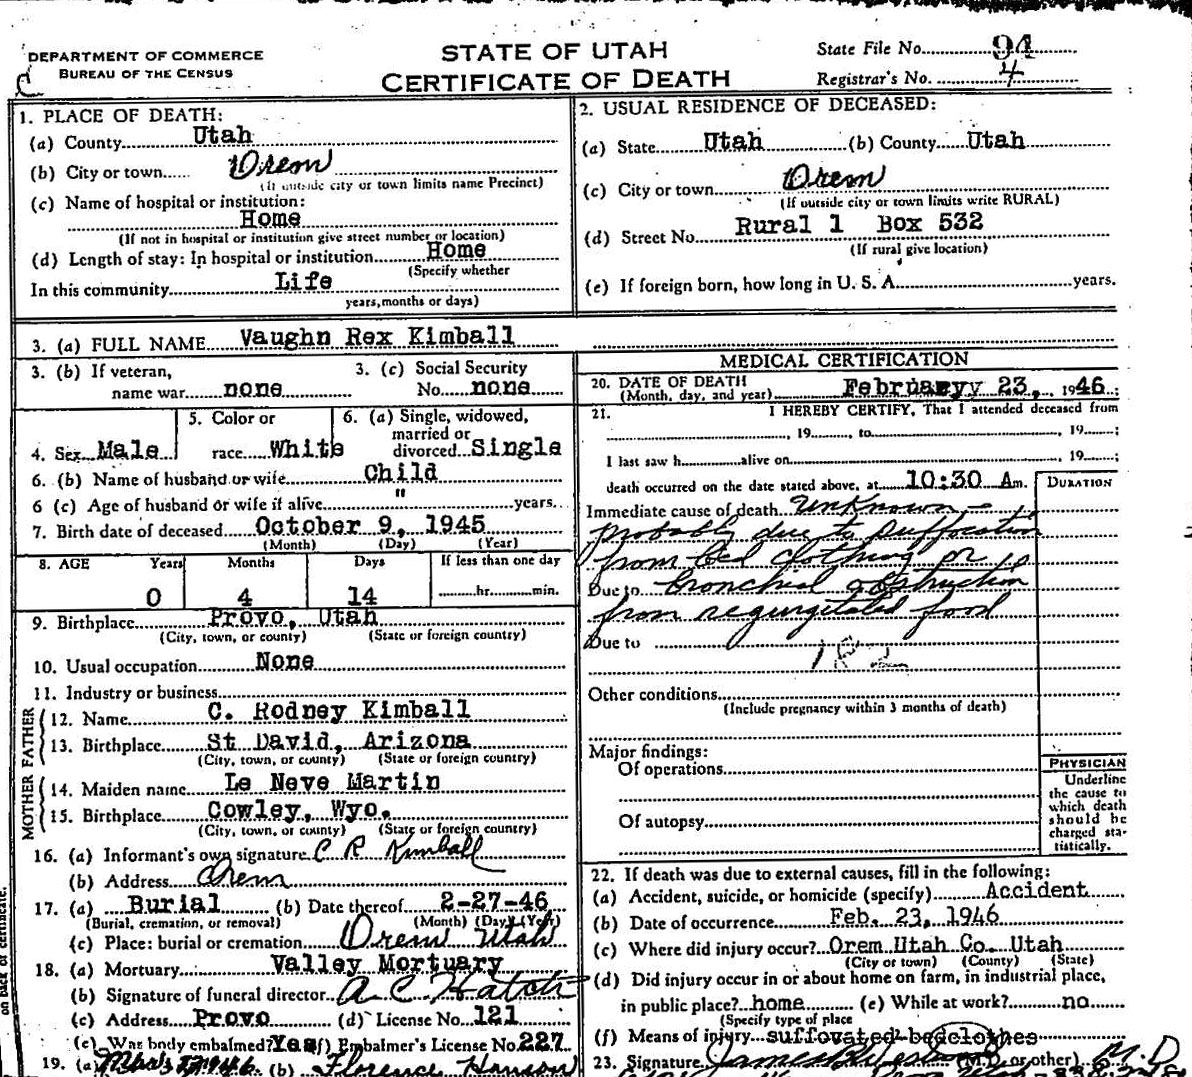 DEPARTMENT OF COMMERCE
BUREAU OF THE CENSUS
STATE OF UTAH
CERTIFICATE OF DEATH
State File No. 94
Registrar's No. 4
1. PLACE OF DEATH:
(a) County Utah
(b) City or town Orem
(If outside city or town limits name Precinct)
(c) Name of hospital or institution:
Home
(If not in hospital or institution give street number or location)
(d) Length of stay: In hospital or institution Home
(Specify whether
In this community Life
years, months or days)
2. USUAL RESIDENCE OF DECEASED:
(a) State Utah (b) County Utah
(c) City or town Orem
(If outside city or town limits write RURAL)
(d) Street No. Rural 1 Box 532
(If rural give location)
(e) If foreign born, how long in U. S. A. years.
3. (a) FULL NAME Vaughn Rex Kimball
3. (b) If veteran,
name war none
3. (c) Social Security
No. none
4. Sex Male
5. Color or
race White
6. (a) Single, widowed,
married or
divorced Single
6. (b) Name of husband or wife Child
6 (c) Age of husband or wife if alive " years.
7. Birth date of deceased October 9, 1945
(Month) (Day) (Year)
8. AGE Years Months Days If less than one day
0 4 14 hr. min.
9. Birthplace Provo, Utah
(City, town, or county) (State or foreign country)
10. Usual occupation None
11. Industry or business
FATHER
12. Name C. Rodney Kimball
13. Birthplace St David, Arizona
(City, town, or county) (State or foreign country)
MOTHER
14. Maiden name Le Neve Martin
15. Birthplace Cowley, Wyo.
(City, town, or county) (State or foreign country)
16. (a) Informant's own signature C R Kimball
(b) Address Orem
17. (a) Burial (b) Date thereof 2-27-46
(Burial, cremation, or removal) (Month) (Day) (Year)
(c) Place: burial or cremation Orem Utah
18. (a) Mortuary Valley Mortuary
(b) Signature of funeral director A. C. Hatch
(c) Address Provo (d) License No. 121
(e) Was body embalmed? Yes (f) Embalmer's License No. 227
19. (a) 1946 (b) Florence Hanson
MEDICAL CERTIFICATION
20. DATE OF DEATH
(Month, day, and year) February 23, 1946;
21. I HEREBY CERTIFY, That I attended deceased from
, 19 , to , 19 ;
I last saw h alive on , 19 ;
death occurred on the date stated above, at 10:30 A m.
DURATION
Immediate cause of death Unknown -
probably due to suffocation
from bed clothing or is
Due to bronchial obstruction
from regurgitated food
Due to
182
Other conditions
(Include pregnancy within 3 months of death)
Major findings:
Of operations
Of autopsy
PHYSICIAN
Underline
the cause to
which death
should be
charged sta-
tistically.
22. If death was due to external causes, fill in the following:
(a) Accident, suicide, or homicide (specify) Accident
(b) Date of occurrence Feb. 23, 1946
(c) Where did injury occur? Orem Utah Co. Utah
(City or town) (County) (State)
(d) Did injury occur in or about home on farm, in industrial place,
in public place? home (e) While at work? no
(Specify type of place
(f) Means of injury suffovated bedclothes
23. Signature (M.D. or other) M.D
on back of certificate.